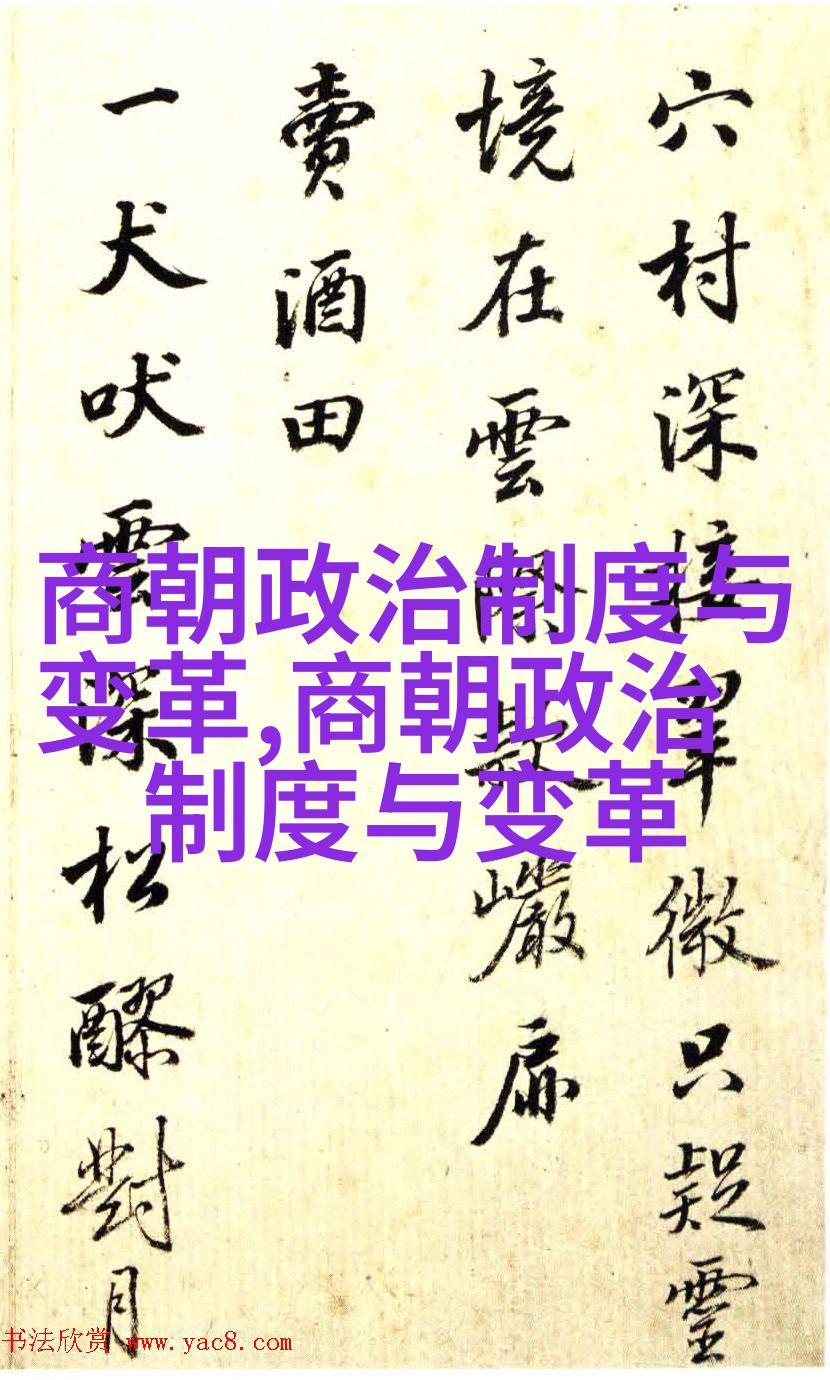 穴村深接翠微只疑靈
境在雲際敲巖扉
賣酒田
一犬吠雲深松醪對月
商朝政治制度与
变革,商朝政治
制度与变革
书法欣赏 www.yac8.com